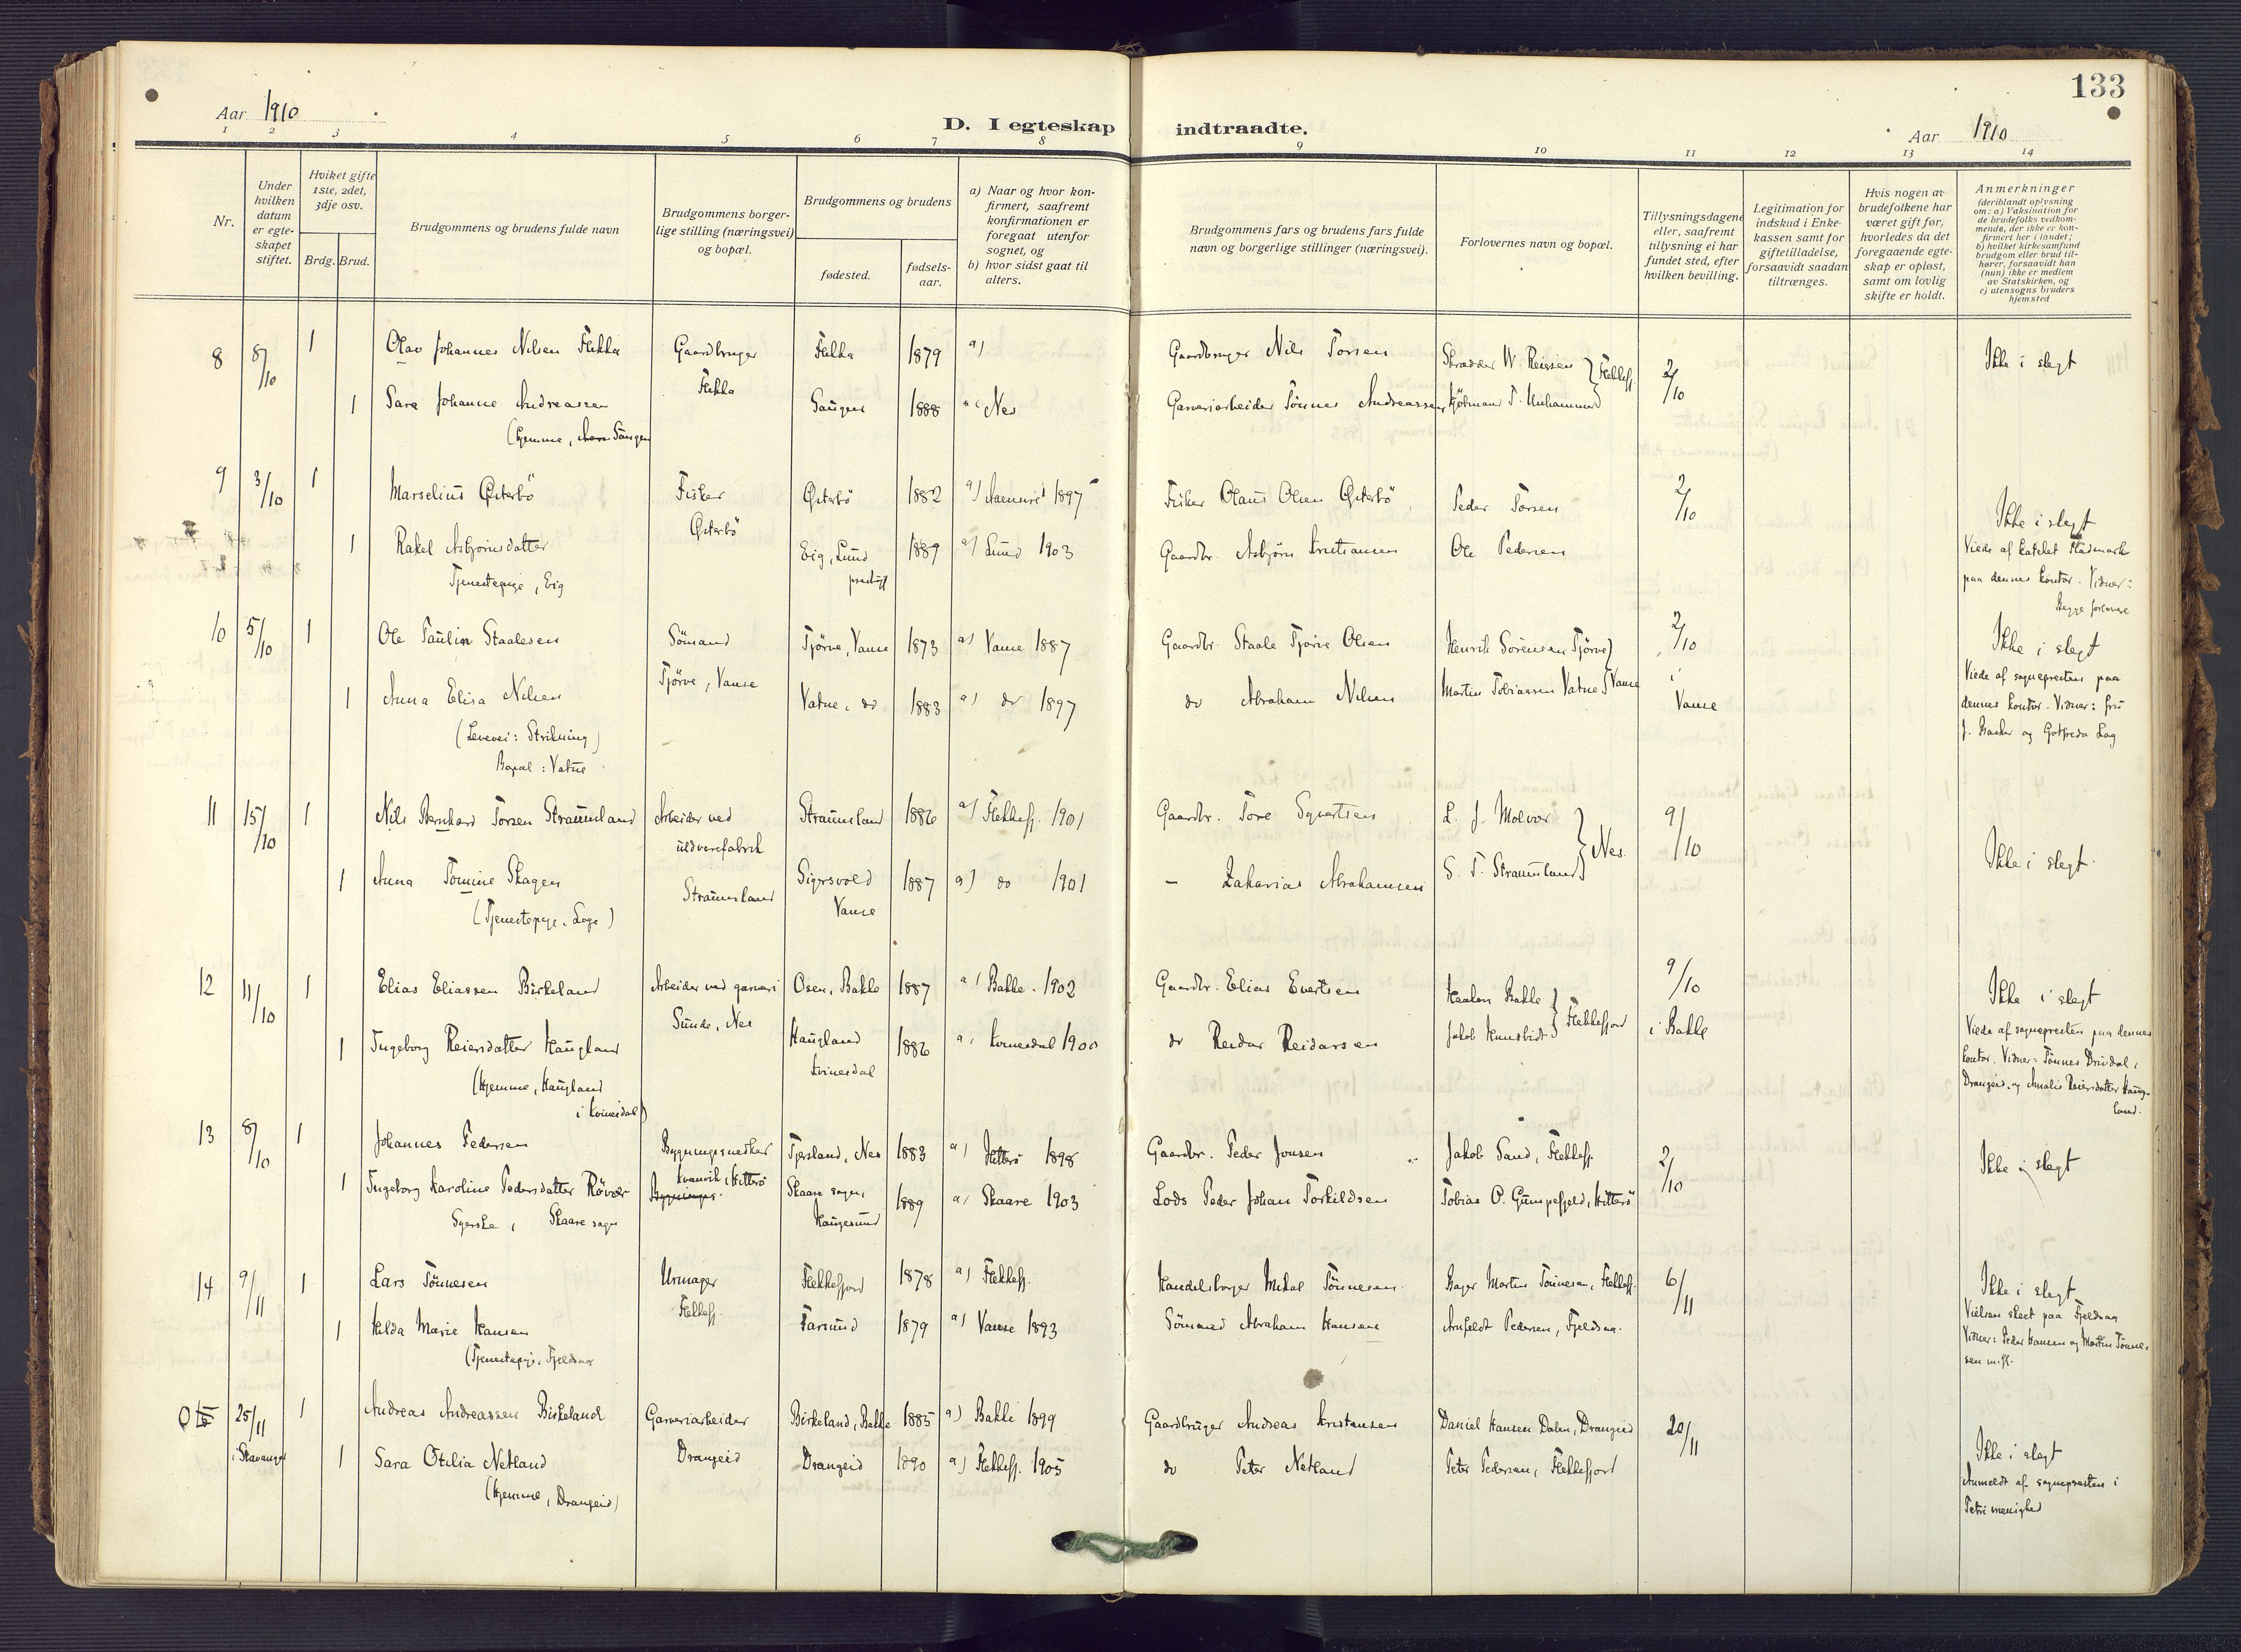 133
Aar 1910
D. I egteskap indtraadte.
Aar 1910
1 2 3 4 5 6 7 8 9 10 11 12 13 14
Nr.
Under hvilken datum er egteskapet stiftet.
Hviket gifte 1ste, 2det, 3dje osv.
Brdg. Brud.
Brudgommens og brudens fulde navn
Brudgommens borgerlige stilling (næringsvei) og bopæl.
Brudgommens og brudens
fødested.
fødselsaar.
a) Naar og hvor konfirmert, saafremt konfirmationen er foregaat utenfor sognet, og
b) hvor sidst gaat til alters.
Brudgommens fars og brudens fars fulde navn og borgerlige stillinger (næringsvei).
Forlovernes navn og bopæl.
Tillysningsdagene eller, saafremt tillysning ei har fundet sted, efter hvilken bevilling.
Legitimation for indskud i Enkekassen samt for giftetilladelse, forsaavidt saadan tiltrænges.
Hvis nogen av brudefolkene har været gift før, hvorledes da det foregaaende egteskap er opløst, samt om lovlig skifte er holdt.
Anmerkninger (deriblandt oplysning om: a) Vaksination for de brudefolks vedkommende, der ikke er konfirmert her i landet; b) hvilket kirkesamfund brudgom eller brud tilhører, forsaavidt han (hun) ikke er medlem av Statskirken, og c) utensogns bruders hjemsted
8 8/10 1 Olav Johannes Nilsen Flikka Gaardbruger Flikka 1879 a) Gaardbruger Nils Torsen Skrædder W. Reiersen Flekkefj. 2/10 Ikke i slegt
Flikka
1 Sara Johanne Andreassen 1888 Nes Garveriarbeider Tönnes Andreassen
(Hjemme,
9 3/10 1 Marselius Österbö Fisker Österbö 1882 a) 1897 Fisker Olaus Olsen Österbö Peder Torsen 2/10 Ikke i slegt
Österbö
1 Rakel Asbjörnsdatter Eig, Lund 1889 a) Lund 1903 Gaardbr. Asbjörn Kristiansen Ole Pedersen Viede af
Tjenestepige, Eig
paa dennes kontor. Vidner:
Begge forlovere
10 5/10 1 Ole Paulin Staalesen Sömand Tjörve, Vanse 1873 a) Vanse 1887 Gaardbr. Staale Tjörve Olsen Henrik Sörensen Tjörve 2/10 Ikke i slegt
Tjörve, Vanse
1 Anna Elisa Nilsen Vatne, do 1883 a) do 1897 do Abraham Nilsen Martin Tobiassen Vatne Vanse i Vanse
(Levevei: Strikning)
Bopæl: Vatne
Viede af sognepresten paa
dennes kontor. Vidner: fru
J. Barker og Gotfreda Lag
11 15/10 1 Nils Bernhard Torsen Straumland Arbeider ved Straumland 1886 a) Flekkefj. 1901 Gaardbr. Tore Syvertsen L. J. Molvær Nes. 9/10 Ikke i slegt
uldvarefabrik
Straumland
1 Anna Tomine Skagen Sigersvold Vanse 1887 a) do 1901 – Zakarias Abrahamsen S. T. Straumland
(Tjenestepige, Loge)
12 11/10 1 Elias Eliassen Birkeland Arbeider ved garveri Osen, Bakke 1887 a) Bakke 1902 Gaardbr. Elias Evertsen Haakon Bakke Flekkefjord 9/10 Ikke i slegt
Sunde, Nes
1 Ingeborg Reiersdatter Haugland Haugland Kvinesdal 1886 a) Kvinesdal 1900 do Reidar Reidarsen Jakob i Bakke
(Hjemme, Haugland
i Kvinesdal)
Viede af sognepresten paa dennes
kontor. Vidner: Tönnes Drivdal,
Drangeid, og Amalie Reiersdatter Haugland.
13 8/10 1 Johannes Pedersen Bygningssnedker Tjersland, Nes 1883 a) Hitterö 1898 Gaardbr. Peder Jonsen Jakob Sand, Flekkefj. 2/10 Ikke i slegt
Kvanvik, Hitterö
1 Ingeborg Karoline Pedersdatter Rövær Skaare sogn, Haugesund 1889 a) Skaare 1903 Lods Peder Johan Torkildsen Tobias O. Gumpefjeld, Hitterö
Syerske, Skaare sogn
14 9/11 1 Lars Tönnesen Urmager Flekkefjord 1878 a) Flekkefj. Handelsborger Mikal Tönnesen Bager Martin Tönnesen, Flekkefj. 6/11 Ikke i slegt
Flekkefj.
1 Hilda Marie Hansen Farsund 1879 a) Vanse 1893 Sömand Abraham Hansen Arnfeldt Pedersen, Fjeldsaa.
(Tjenestepige, Fjeldsaa
Vielsen skeet paa Fjeldsaa
Vidner: Peder Hansen og Martin Tönnesen m.fl.
0 25/11 1 Andreas Andreassen Birkeland Garveriarbeider Birkeland, Bakke 1885 a) Bakke 1899 Gaardbruger Andreas Kristensen Daniel Hansen Dalen, Drangeid 20/11 Ikke i slegt
i Stavanger Drangeid
1 Sara Otelia Netland Drangeid 1890 a) Flekkefj. 1905 do Peter Netland Peter Pedersen, Flekkefjord
(Hjemme, Drangeid)
Anmeldt af sognepresten i
Petri menighed